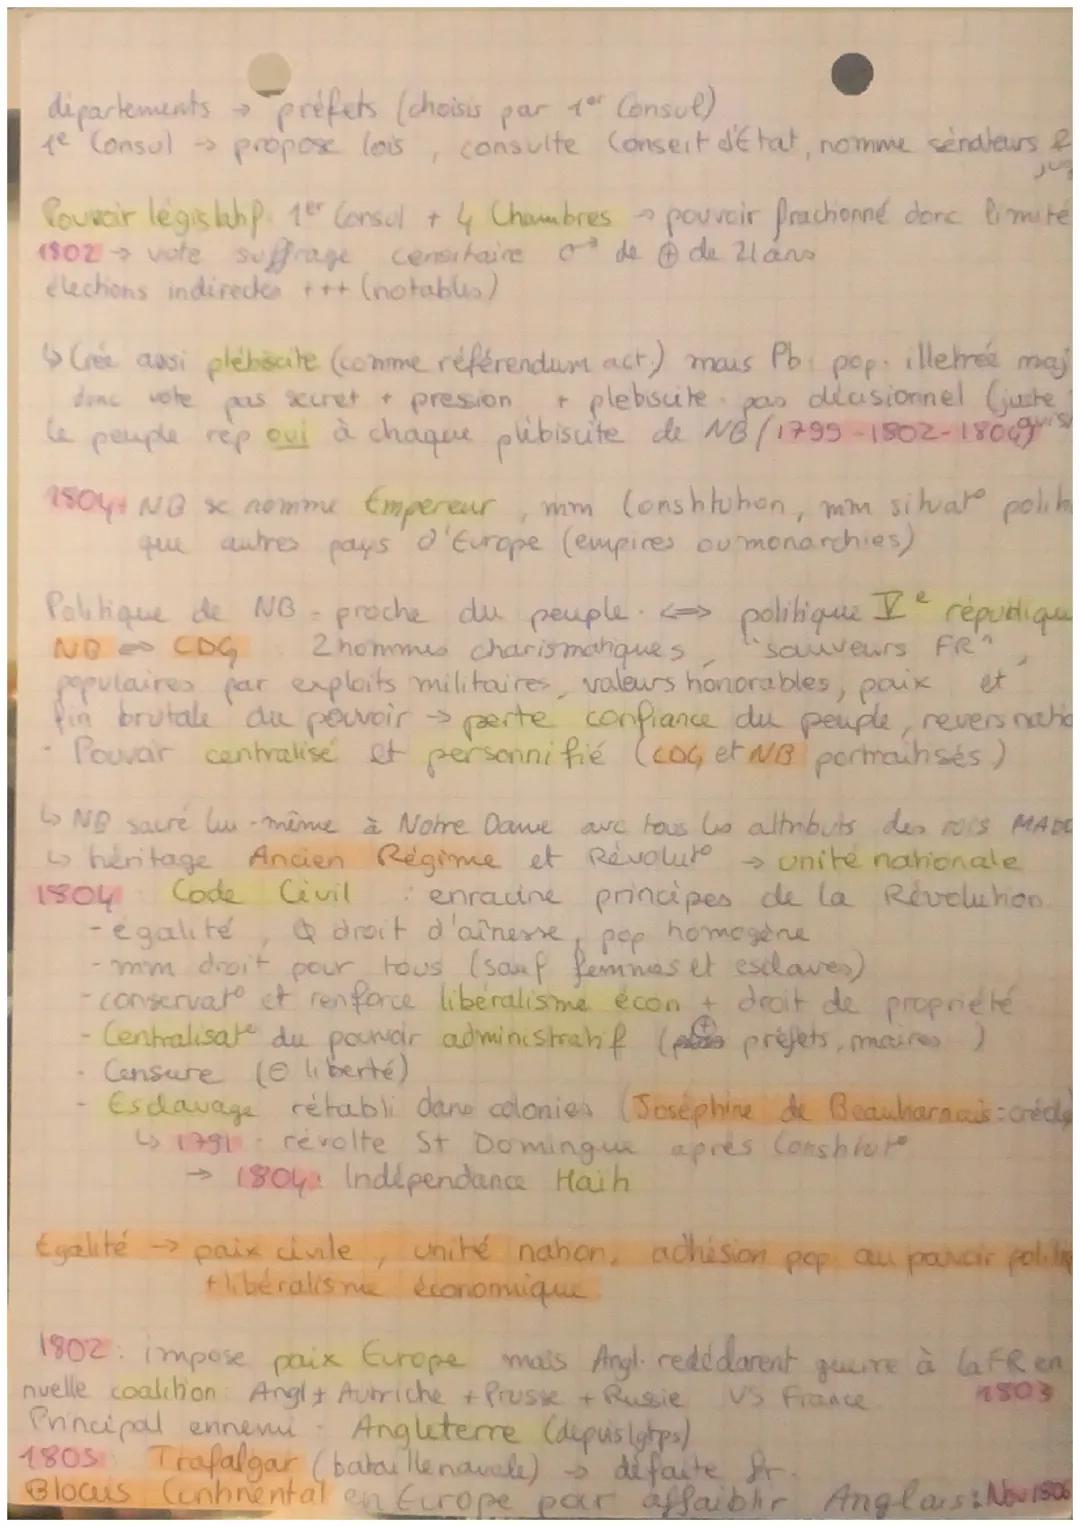 départements → préfets (choisis par 1er Consul)
1e Consul → propose lois, consulte Conseil d'Etat, nomme sénateurs &
Pouvoir législatif: 1er Consul + 4 Chambres → pouvoir fractionné donc limité
1802 → vote suffrage censitaire ♂ de ⊕ de 21 ans
élections indirectes +++ (notables)
↳ Crée aussi plébiscite (comme référendum act.) mais Pb: pop. illetrée maj
donc vote pas secret + pression + plebiscite pas décisionnel (juste
le peuple rép oui à chaque plébiscite de NB (1799-1802-1804)
1804: NB se nomme Empereur, mm Constitution, mm situat° polit
que autres pays d'Europe (empires ou monarchies)
Politique de NB - proche du peuple. <=> politique Ve république
NB <=> CDG : 2 hommes charismatiques, "sauveurs FR",
populaires par exploits militaires, valeurs honorables, paix et
fin brutale du pouvoir → perte confiance du peuple, revers natio
- Pouvoir centralisé et personnifié (CDG et NB portraitisés)
↳ NB sacré lui-même à Notre Dame avc tous les attributs des rois
↳ héritage Ancien Régime et Révolut° → unité nationale
1804: Code Civil : enracine principes de la Révolution.
- égalité, Ø droit d'aînesse, pop homogène
- mm droit pour tous (sauf femmes et esclaves)
- conservat° et renforce libéralisme écon + droit de propriété
- Centralisat° du pouvoir administratif (⊕ préfets, maires)
- Censure (⊖ liberté)
- Esclavage rétabli dans colonies (Joséphine de Beauharnais: créole
↳ 1791: révolte St Domingue après Constitut°
→ 1804: Indépendance Haiti
Egalité → paix civile, unité nation, adhésion pop au pouvoir politiq
+ libéralisme économique
1802: impose paix Europe mais Angl. redéclarent guerre à la FR en
nvelle coalition: Angl + Autriche + Prusse + Russie VS France 1803
Principal ennemi: Angleterre (depuis lgtps)
1805: Trafalgar (bataille navale) → défaite fr.
Blocus Continental en Europe pour affaiblir Anglais: Nov 1806